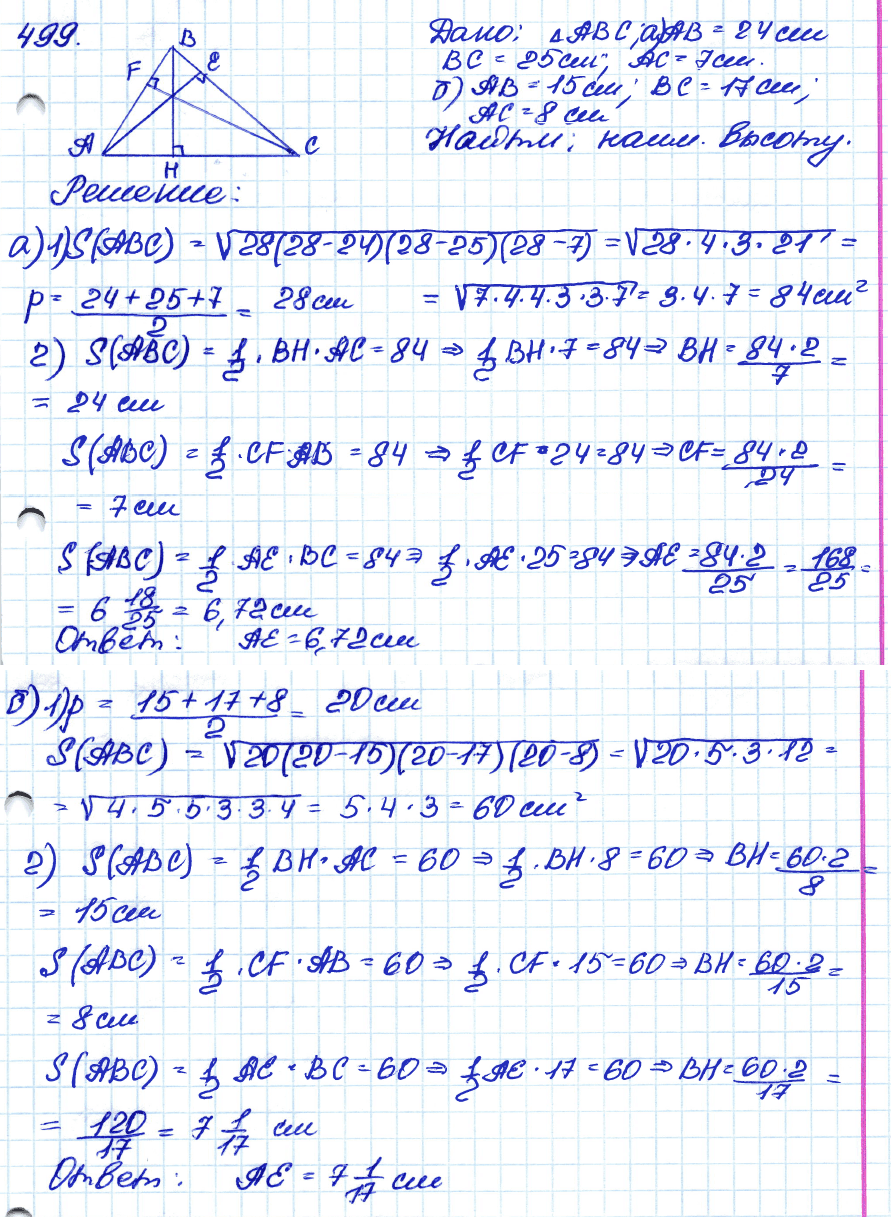 499.
B
F
E
A
H
C
Дано: △ABC; а) AB = 24 см
BC = 25 см; AC = 7 см.
б) AB = 15 см; BC = 17 см;
AC = 8 см
Найти: наим. высоту.
Решение:
а) 1) S(ABC) = √28(28-24)(28-25)(28-7) = √28·4·3·21 =
p = (24+25+7)/2 = 28 см = √7·4·4·3·3·7 = 3·4·7 = 84 см²
2) S(ABC) = 1/2 · BH · AC = 84 ⇒ 1/2 BH · 7 = 84 ⇒ BH = (84·2)/7 =
= 24 см
S(ABC) = 1/2 · CF · AB = 84 ⇒ 1/2 CF · 24 = 84 ⇒ CF = (84·2)/24 =
= 7 см
S(ABC) = 1/2 AE · BC = 84 ⇒ 1/2 · AE · 25 = 84 ⇒ AE = (84·2)/25 = 168/25 =
= 6 18/25 = 6,72 см
Ответ: AE = 6,72 см
б) 1) p = (15+17+8)/2 = 20 см
S(ABC) = √20(20-15)(20-17)(20-8) = √20·5·3·12 =
= √4·5·5·3·3·4 = 5·4·3 = 60 см²
2) S(ABC) = 1/2 BH · AC = 60 ⇒ 1/2 · BH · 8 = 60 ⇒ BH = (60·2)/8 =
= 15 см
S(ABC) = 1/2 · CF · AB = 60 ⇒ 1/2 · CF · 15 = 60 ⇒ BH = (60·2)/15 =
= 8 см
S(ABC) = 1/2 AE · BC = 60 ⇒ 1/2 AE · 17 = 60 ⇒ BH = (60·2)/17 =
= 120/17 = 7 1/17 см
Ответ: AE = 7 1/17 см